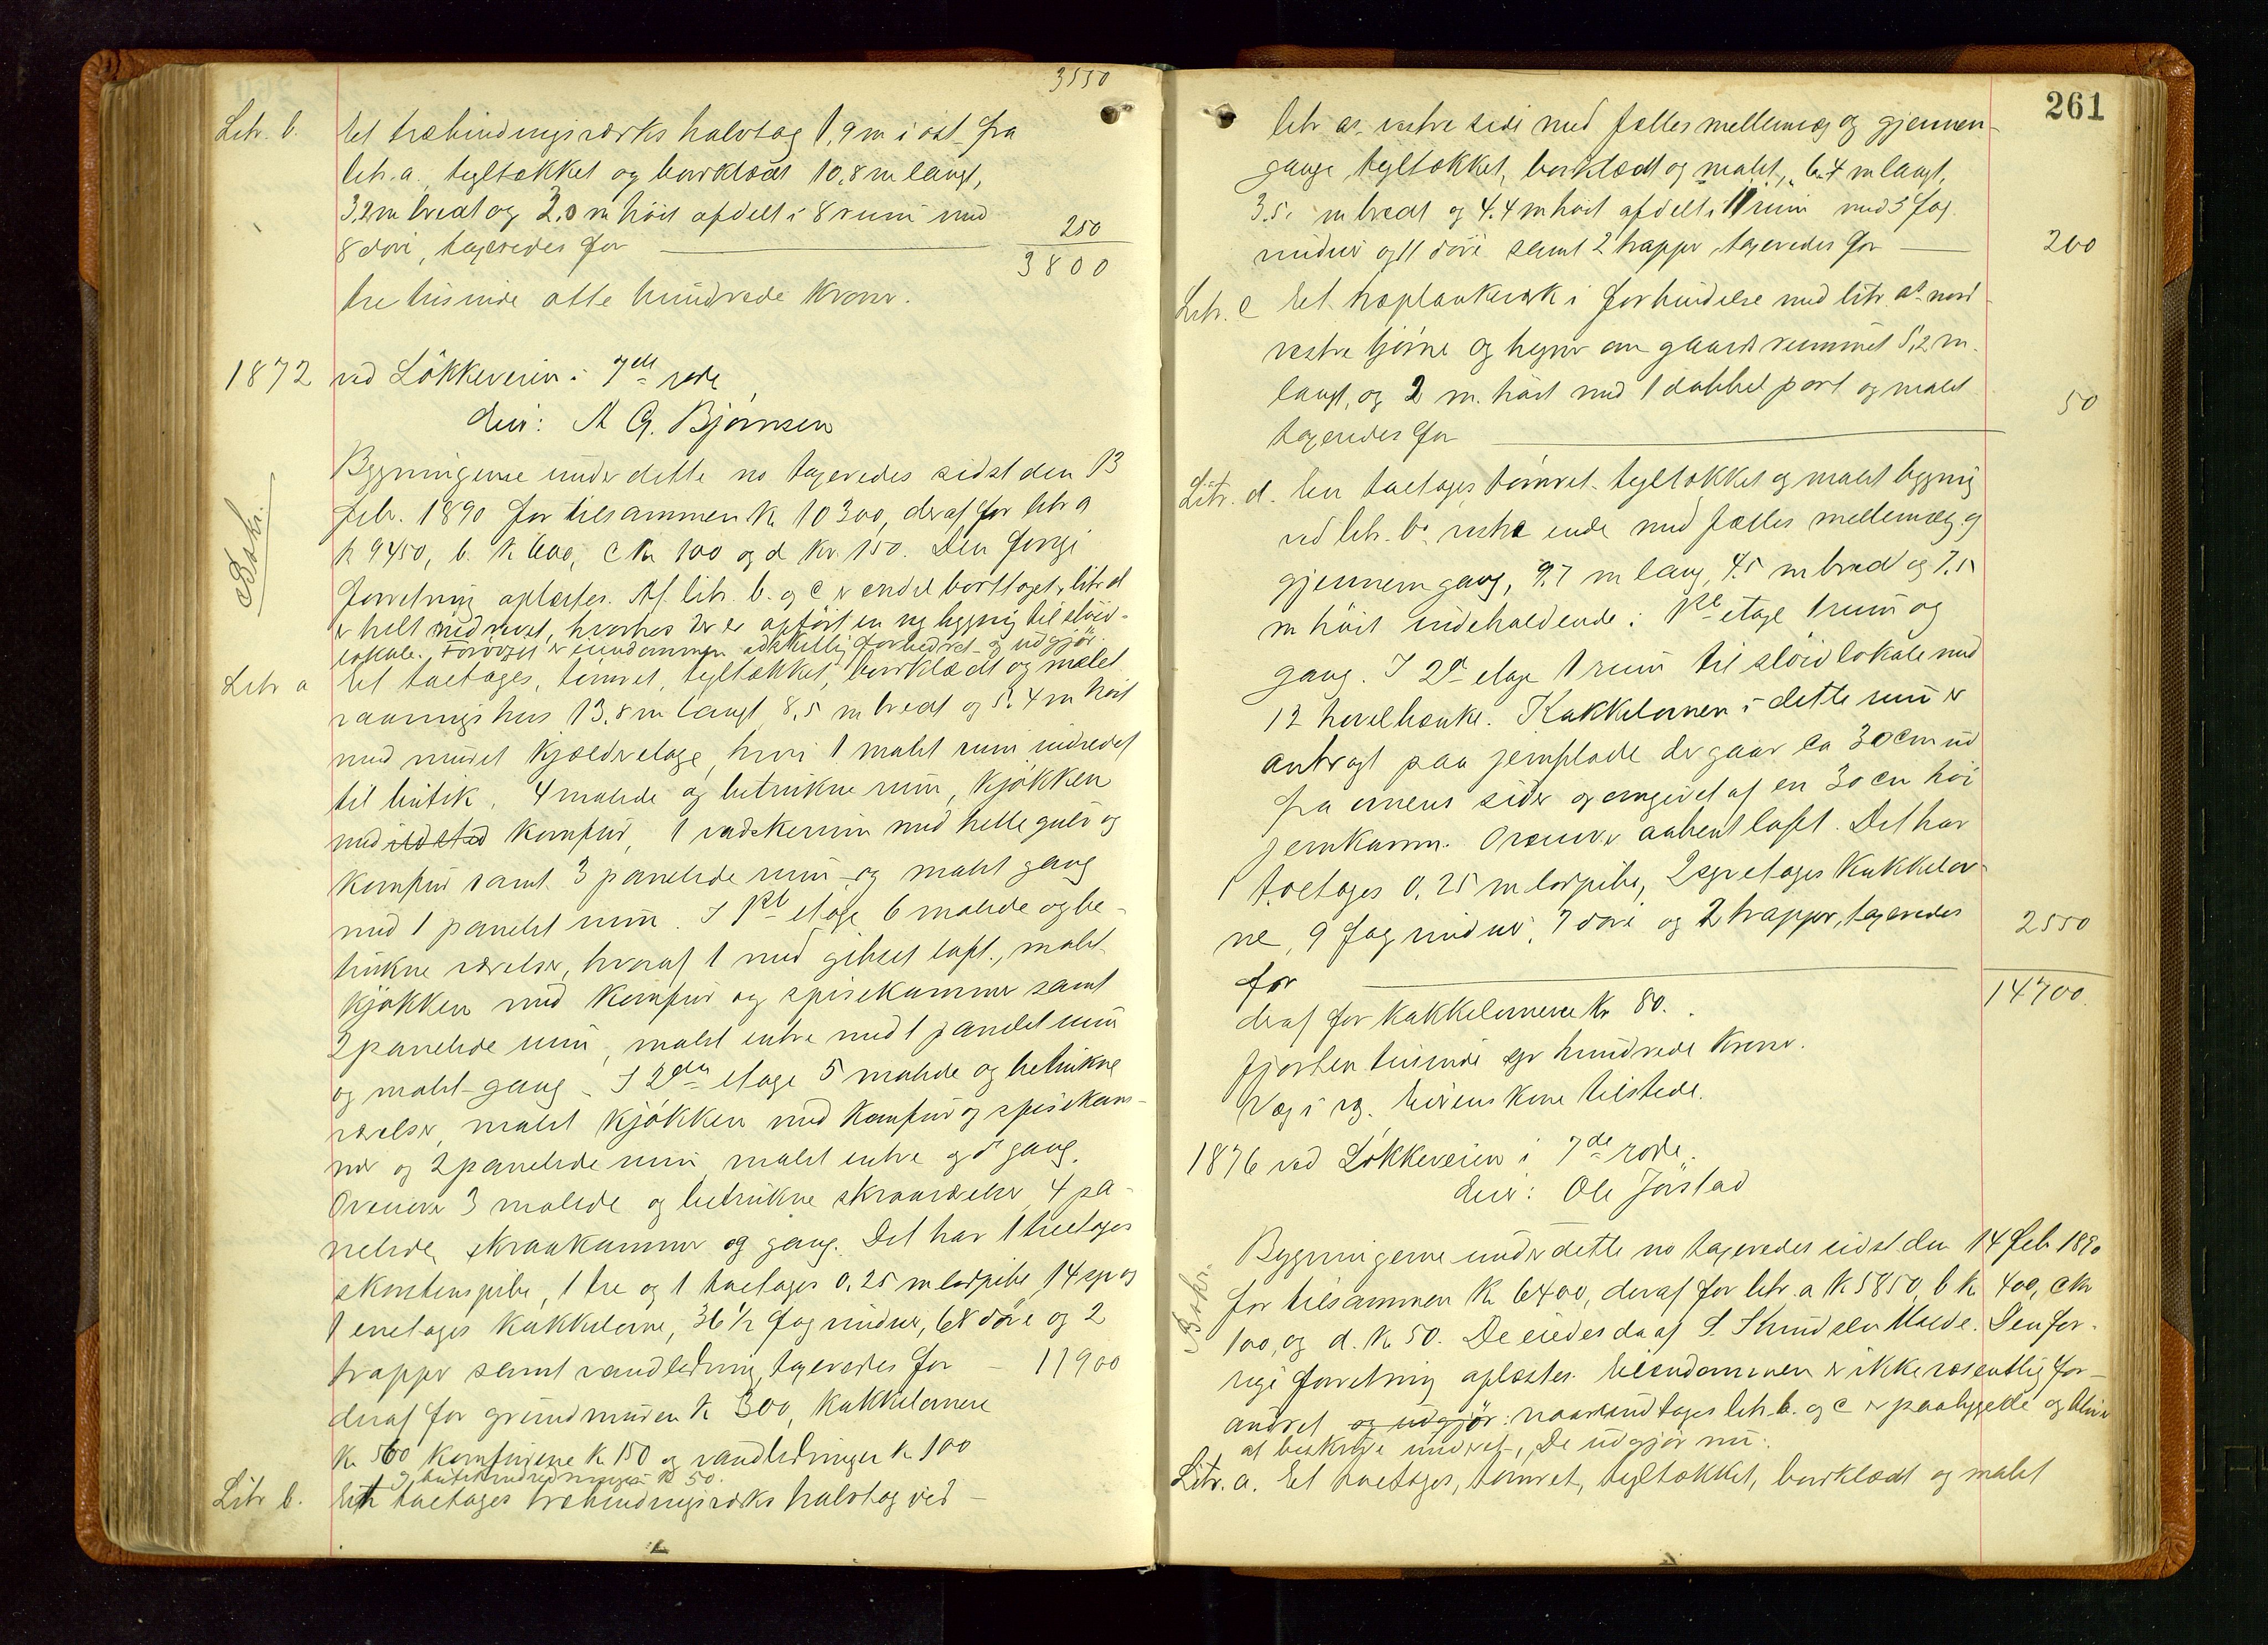 3550
Litr. b. Et træbindingsværks halvtag 1,9 m i øst fra
litr. a. tegltækket og bordklædt 10,8 m langt,
3,2 m bredt og 2,0 m höit afdelt i 8 rum med
8 döre, taxeredes for — 250
3800
tre tusinde otte hundrede kroner.
1872 ved Lökkeveien i 7de rode
Eier: A G. Björnsen
Bygningerne under dette no taxeredes sidst den 13
Beskr.
febr. 1890 for tilsammen K 10300, deraf for litr a
K 9450, b. K 600, c Kr 100 og d Kr. 150. Den forrige
forretning oplæstes. Af litr. b. og c er endel borttaget, litr d
er helt nedrevet, hvorhos der er opfört en ny bygning til slöid-
lokale. Forövrigt er eiendommen adskillig forbedret og udgjör.
Litr a Et toetages, tömret, tegltækket, bordklædt og malet
vaaningshus 13,8 m langt 8,5 m bredt og 5,4 m höit
med muret kjælderetage, hvori 1 malet rum indredet
til butik, 4 malede og betrukne rum, kjökken
med ildsted komfur, 1 vadskerum med hellegulv og
komfur samt 3 panelede rum og malet gang
med 1 panelet rum. I 1ste etage 6 malede og be-
trukne værelser, hvoraf 1 med gibset loft, malet
kjökken med komfur og spisekammer samt
2 panelede rum, malet entre med 1 panelet rum
og malet gang. I 2den etage 5 malede og betrukne
værelser, malet kjökken med komfur og spisekam-
mer og 2 panelede rum malet entre og do gang.
Ovenover 3 malede og betrukne skraaværelser, 4 pa-
nelede skraakammer og gang. Det har 1 treetages
skorstenspibe, 1 tre og 1 toetages 0,25 m lodpibe, 14 syv og
1 enetages kakkelovne, 36 1/2 fag vinduer, 68 döre og 2
trapper samt vandledning, taxeredes for — 11900
deraf for grundmuren K 300, kakkelovnene
K. 560 komfurene K 150 og vandledningen K 100
og butikindredningen K 50.
Litr b. Et toetages træbindingsværks halvtag ved
261
litr as. vestre side med fælles mellemvæg og gjennem-
gange, tegltækket, bordklædt og malet, 6.4 m langt,
3.5 m bredt og 4.4 m höit afdelt i 11 rum med 3 fag
vinduer og 11 döre samt 2 trapper, taxeredes for — 200
Litr. c Et træplankeværk i forbindelse med litr. as nord-
vestre hjörne og hegner om gaardsrummet 5,2 m.
langt, og 2 m. höit med 1 dobbel port og malet
taxeredes for — 50
Litr. d. En toetages tömret tegltækket og malet bygning
ved litr. bs. vestre ende med fælles mellemvæg og
gjennemgang, 9.7 m lang, 4.5 m bred og 7.5
m höit indeholdende: 1ste etage 1 rum og
gang. I 2den etage 1 rum til slöidlokale med
12 hövelbænke. Kakkelovnen i dette rum er
anbragt paa jernplade der gaar ca 30 cm ud
fra ovnens sider og omgivet af en 30 cm höi
jernkarm. Ovenover aabent loft. Det har
1 toetages 0,25 m lodpibe, 2 syv etages kakkelov-
ne, 9 fag vinduer, 7 döre og 2 trapper, taxeredes
for — 2550
14700.
deraf for kakkelovnene Kr 80.
fjorten tusinde syv hundrede kroner.
Eierens kone tilstede.
1876 ved Lökkeveien i 7de rode.
Eier: Ole Jörstad
Beskr.
Bygningerne under dette no taxeredes sidst den 14 febr 1890
for tilsammen K 6400, deraf for litr. a K 5850, b K 400, c Kr
100, og d. K 50. De eiedes da af S. Knudsen Malde. Den for-
rige forretning oplæstes. Eiendommen er ikke væsentlig for-
andret og udgjör: naar undtages litr. b. og c er paabyggede og bliver
at beskrive underet, De udgjör nu:
Litr. a. Et toetages, tömret, tegltækket, bordklædt og malet